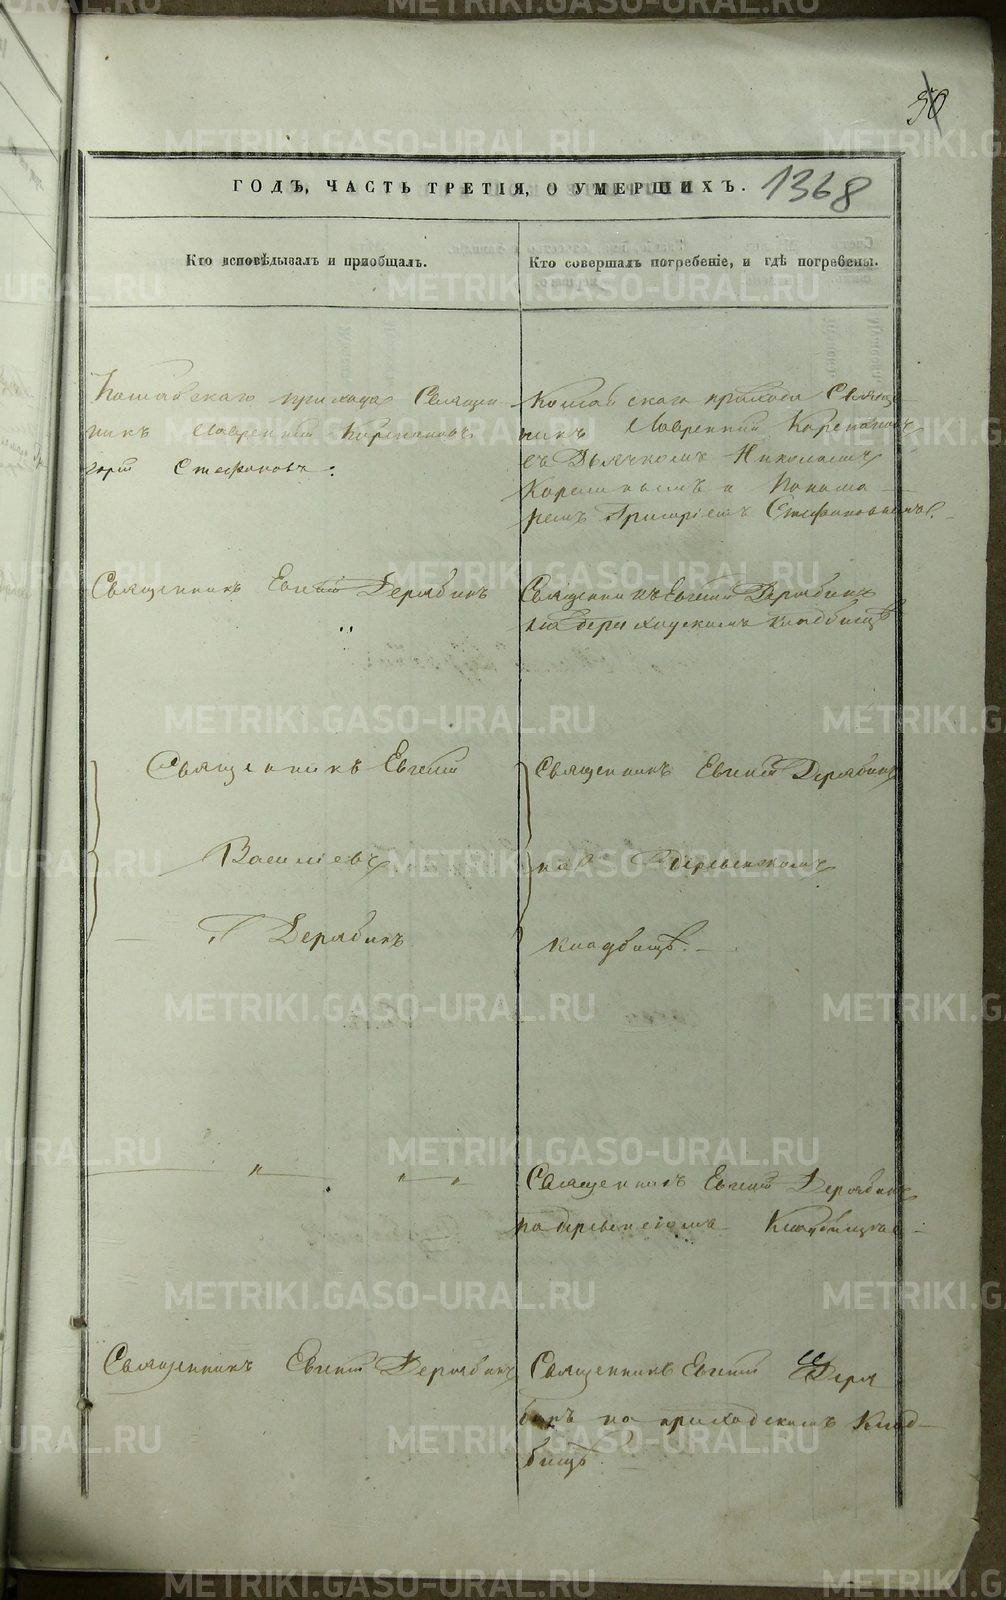 50
ГОДЪ, ЧАСТЬ ТРЕТІЯ, О УМЕРШИХЪ.
1368
Кто исповѣдывалъ и пріобщалъ.
Кто совершалъ погребеніе, и гдѣ погребены.
прихода Священ
никъ Лаврентій
Стефановъ.
прихода Священ
никъ Лаврентій
съ Дьячкомъ Николаемъ
и Понома
ремъ Григоріемъ Стефановымъ.
Священникъ Евгеній Дерябинъ
"
Священникъ Евгеній Дерябинъ
на приходскомъ кладбищѣ
Священникъ Евгеній
Васильевъ
Дерябинъ
Священникъ Евгеній Дерябинъ
на деревенскомъ
кладбищѣ. –
" " "
Священникъ Евгеній Дерябинъ
на деревенскомъ
Священникъ Евгеній Дерябинъ
Священникъ Евгеній Деря
бинъ на приходскомъ клад-
бищѣ.
METRIKI.GASO-URAL.RU